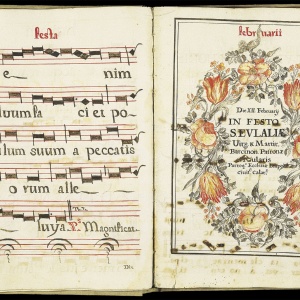 Festa
e nim
ci et po
lum suum a peccatis
orum alle
luya. Magnificat.
Februarii
Die XII February
IN FESTO
S EVLALIÆ
Virg. & Martir.
Barcinon. Patronæ